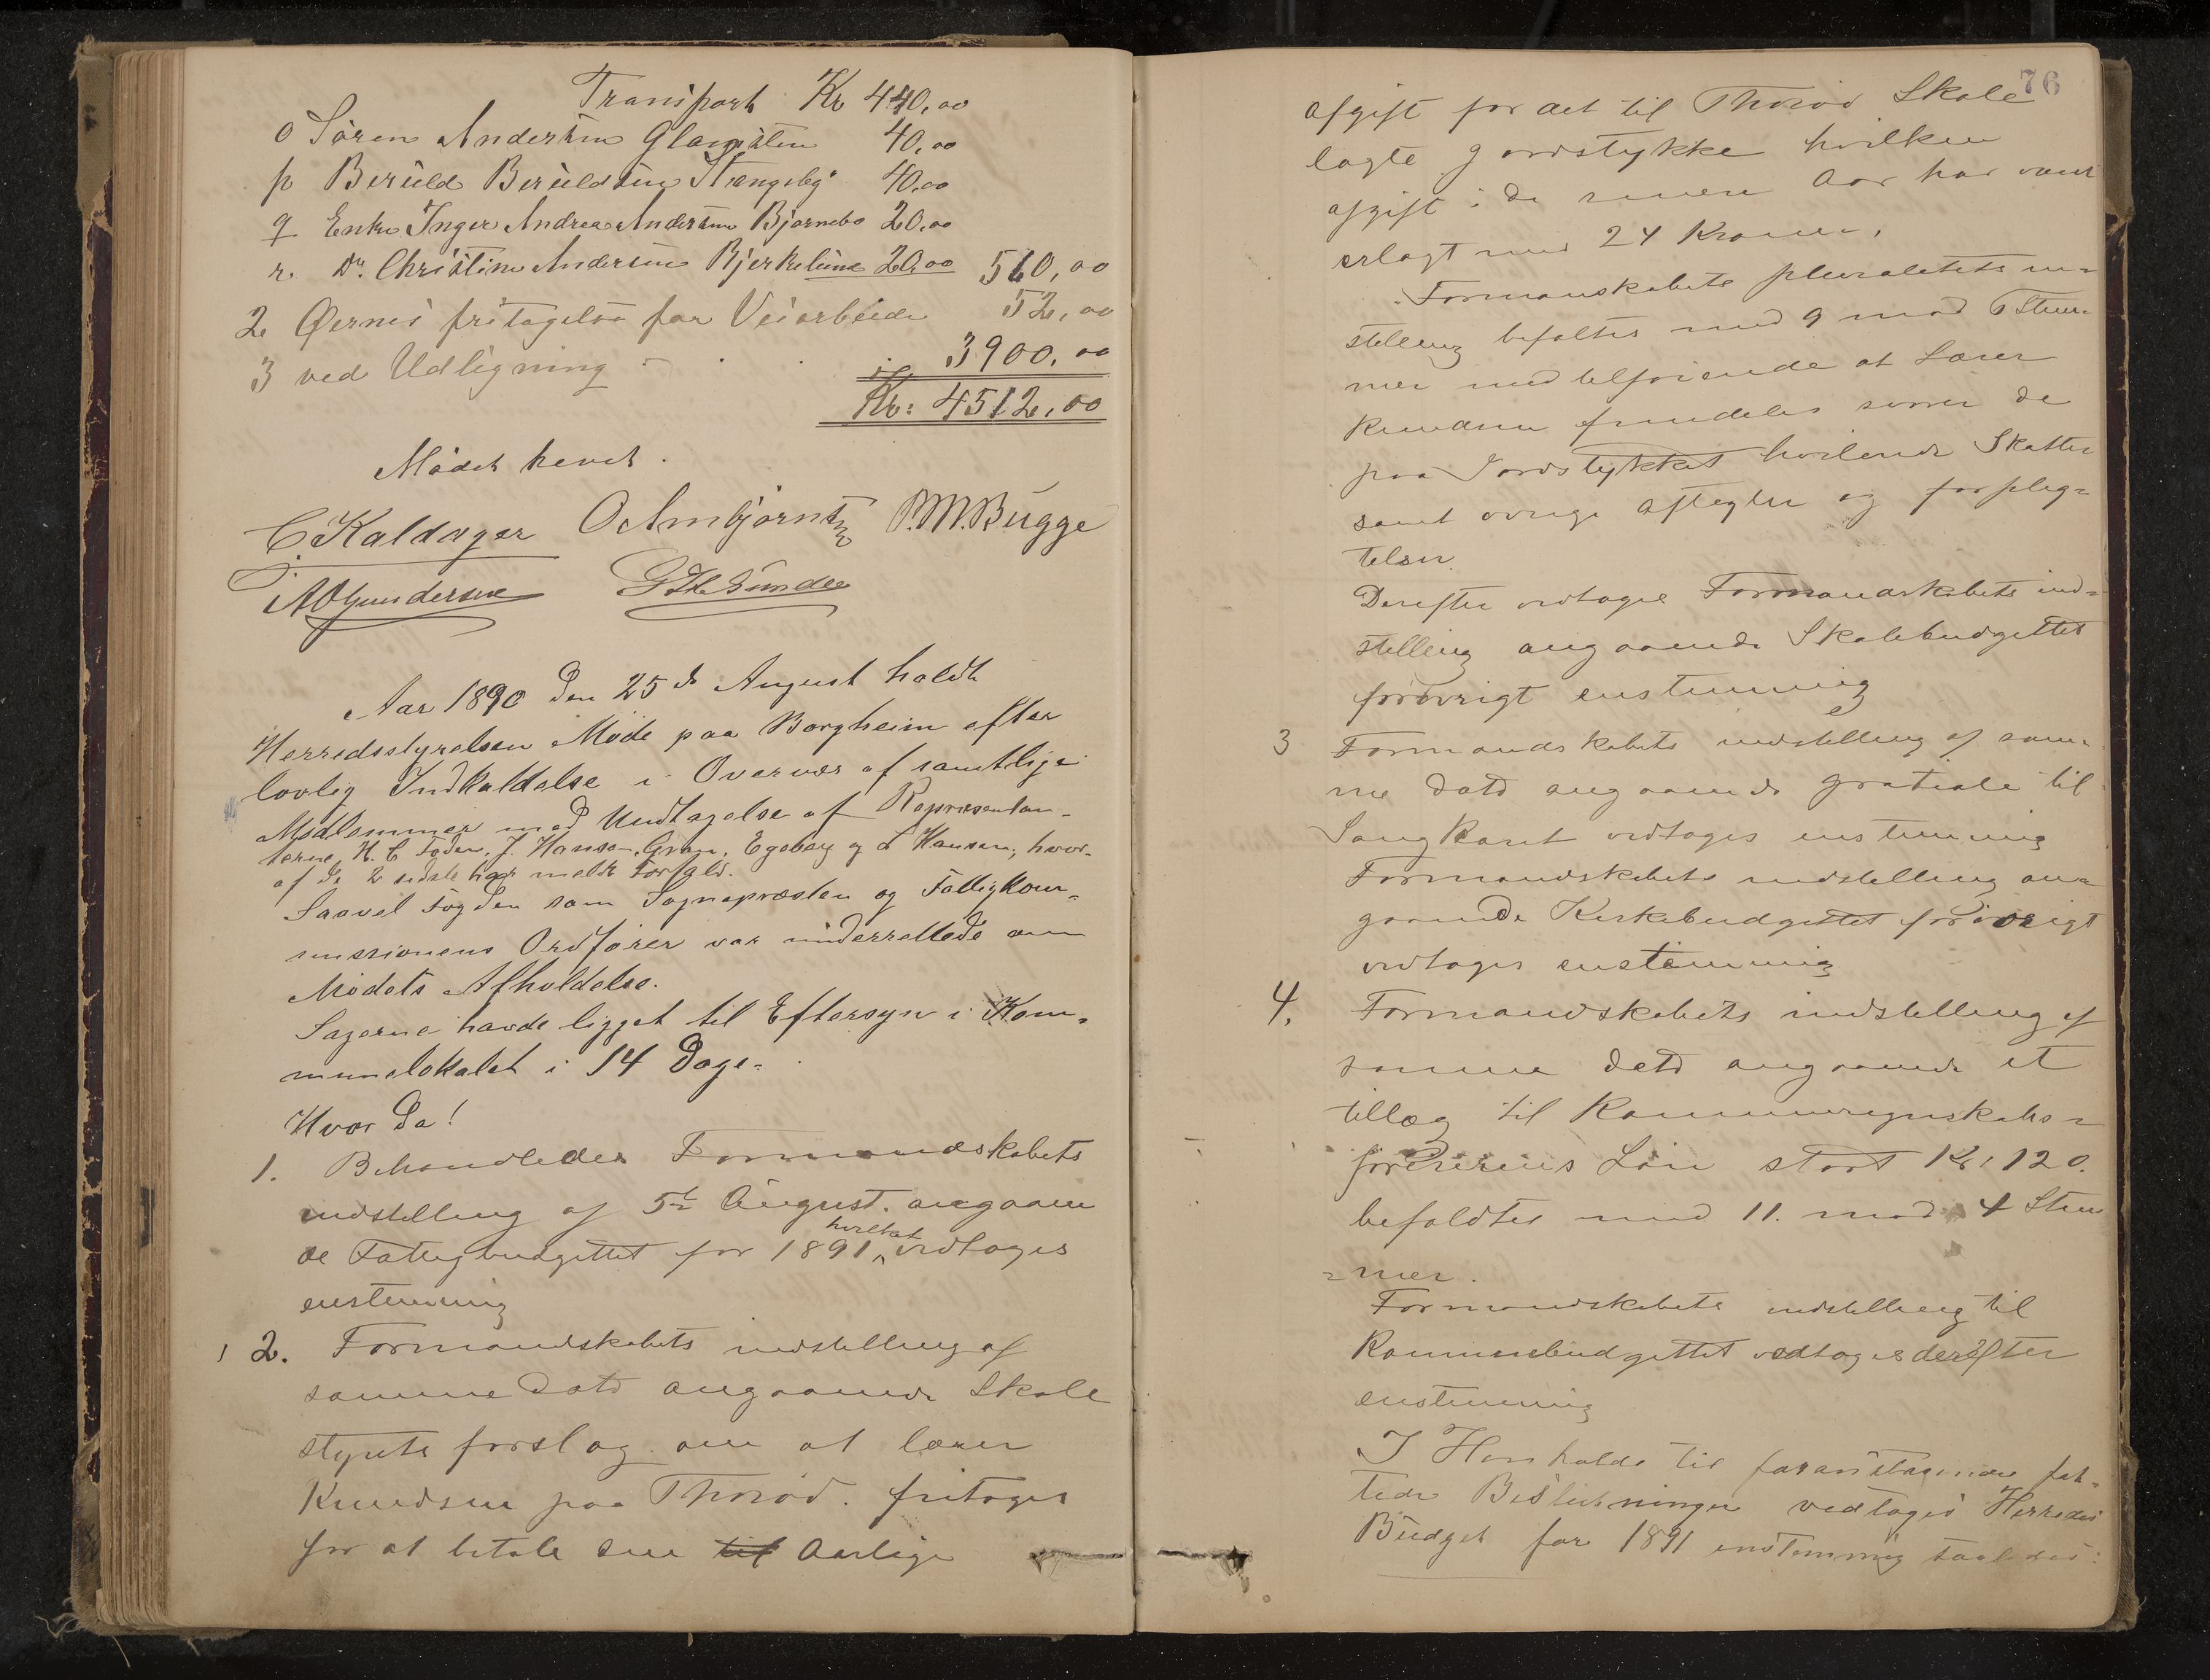 Transport Kr 440,00
o Sören Andersen Glamsten 40,00
p Beruld Beruldsen Stangeby 40,00
q Enke Inger Andrea Andersen Bjørnebo 20,00
r. Do. Christine Andersen Bjerkelund 20,00 560,00
2 Øernes fritagelse for Veiarbeide 52,00
3 ved Udligning . . 3900,00
Kr: 4512,00
Mødet hevet.
C. Kaldager O Ambjørnsen P.M. Bugge
A O Gundersen G Th Sunde
Aar 1890 den 25de August holdt
Herredsstyrelsen Møde paa Borgheim efter
lovlig Indkaldelse i Overvær af samtlige
Medlemmer med Undtagelse af Repræsentan-
terne H. C Foden, J. Hanson Gran, Egeberg og L Hansen, hvor-
af de 2 sidste har meldt Forfald.
Saavel Fogden som Sognepræsten og Fattigkom-
missionens Ordfører var underrettede om
Mødets Afholdelse.
Sagerne havde ligget til Eftersyn i Kom-
munelokalet i 14 Dage.
Hvor da!
1. Behandledes Formandskabets
indstilling af 5te August angaaen
de Fattigbudgettet for 1891, hvilket vedtoges
enstemmig
2. Formandskabets indstilling af
samme Dato angaaende Skole
styrets forslag om at lærer
Knudsen paa Thorød. fritages
for at betale den til Aarlige
76
afgift for det til Thorød Skole
lagte jordstykke hvilken
afgift i de senere Aar har vært
erlagt med 24 Kroner.
Formanskabets pluralitets in-
stilling befaltes med 9 mod 6 Stem-
mer med tilføiende at Lærer
Knudsen fremdeles svarer de
paa Jordstykket hvilende Skatter
samt øvrige afgifter og forplig-
telser.
Derefter vedtoges Formandskabets ind-
stilling angaaende Skolebudgettet
forøvrigt enstemmig
3 Formandskabets indstilling af sam-
me Dato angaaende gratiale til
Sangkoret vedtoges enstemmig
Formandskabets indstilling an-
gaaende Kirkebudgettet forøvrigt
vedtoges enstemmig
4. Formandskabets indstilling af
samme Dato angaaende et
tillæg til Kommuneregnskabs-
førerens Løn stort Kr: 120.
befaldtes med 11. mod 4 Stem
-mer.
Formandskabets indstilling til
Kommunebudgettet vedtoges derefter
enstemmig
I Henholde til foranstaaende fat-
tede Beslutninger vedtoges Herredes
Budget for 1891 enstemmig saaledes: